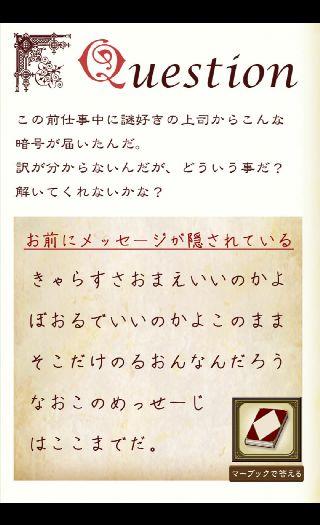 Question
この前仕事中に謎好きの上司からこんな
暗号が届いたんだ。
訳が分からないんだが、どういう事だ？
解いてくれないかな？
お前にメッセージが隠されている
きゃらすさおまえいいのかよ
ぼおるでいいのかよこのまま
そこだけのるおんなんだろう
なおこのめっせーじ
はここまでだ。
マーブックで答える